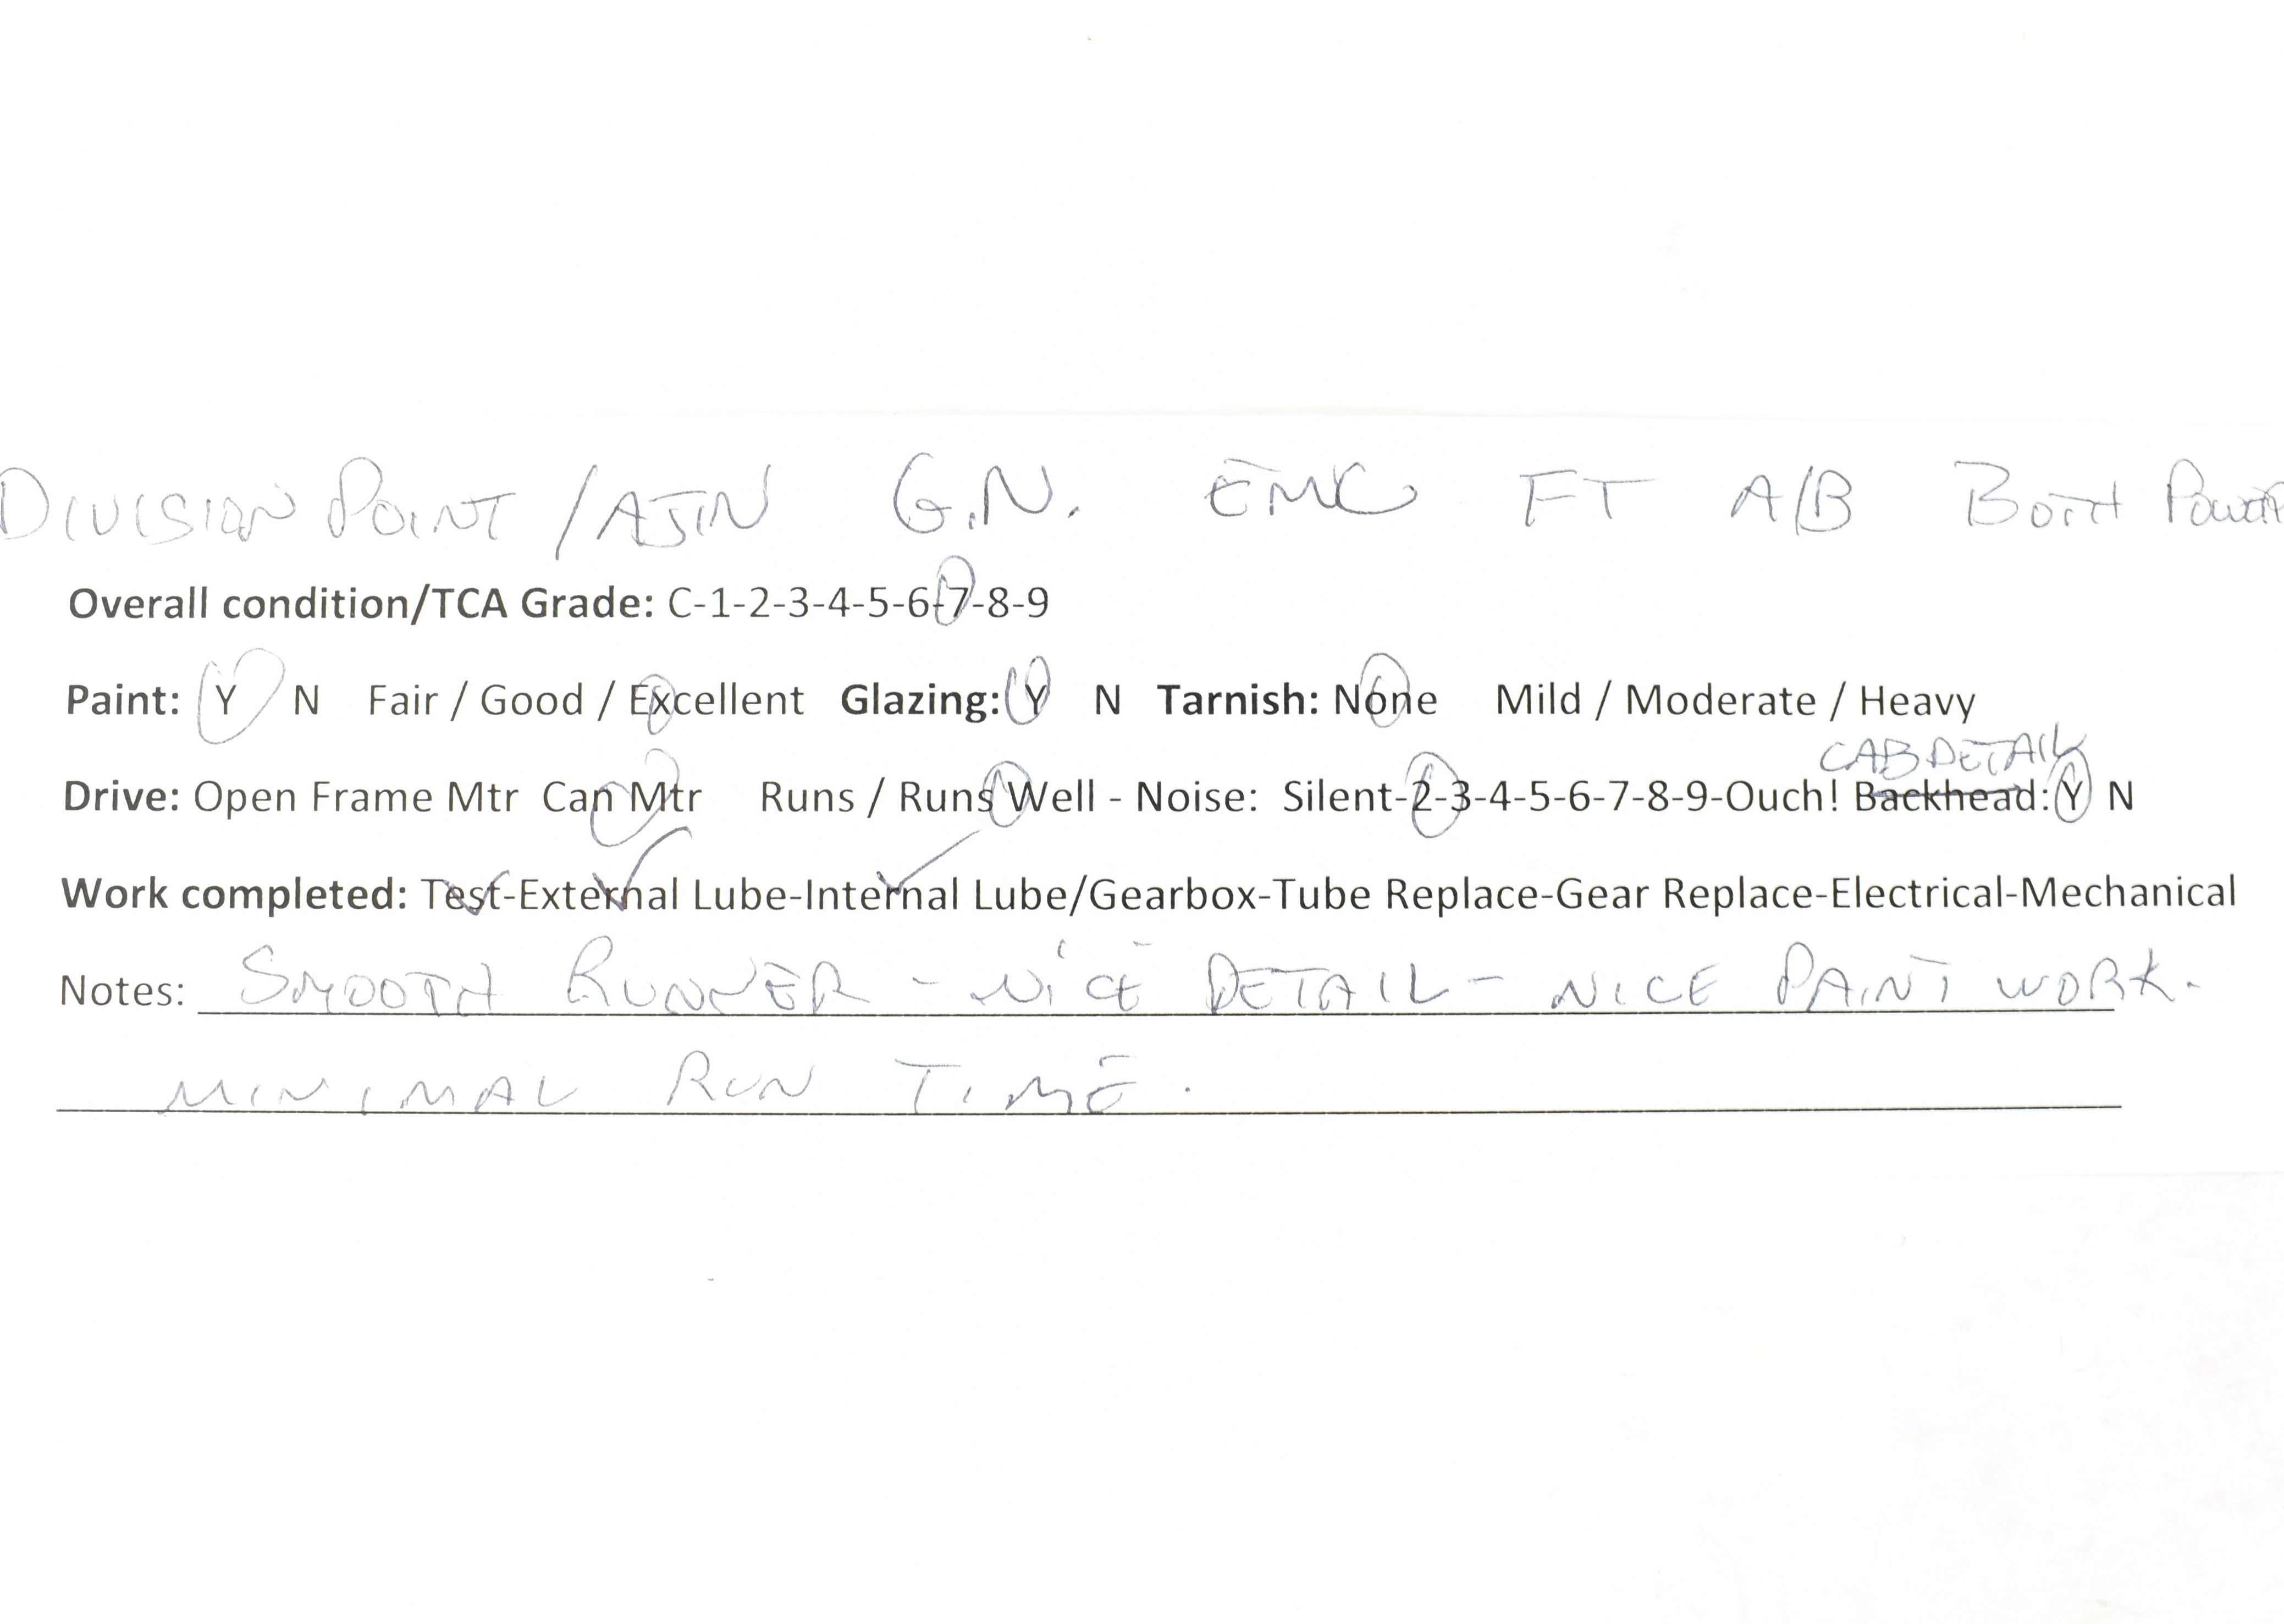 DIVISION POINT / AJIN G.N. EMC FT A/B BOTH
Overall condition/TCA Grade: C-1-2-3-4-5-6-7-8-9
Paint: Y N Fair / Good / Excellent Glazing: Y N Tarnish: None Mild / Moderate / Heavy
CAB DETAIL
Drive: Open Frame Mtr Can Mtr Runs / Runs Well - Noise: Silent-2-3-4-5-6-7-8-9-Ouch! Backhead: Y N
Work completed: Test-External Lube-Internal Lube/Gearbox-Tube Replace-Gear Replace-Electrical-Mechanical
Notes: SMOOTH RUNNER - NICE DETAIL - NICE PAINT WORK.
MINIMAL RUN TIME.